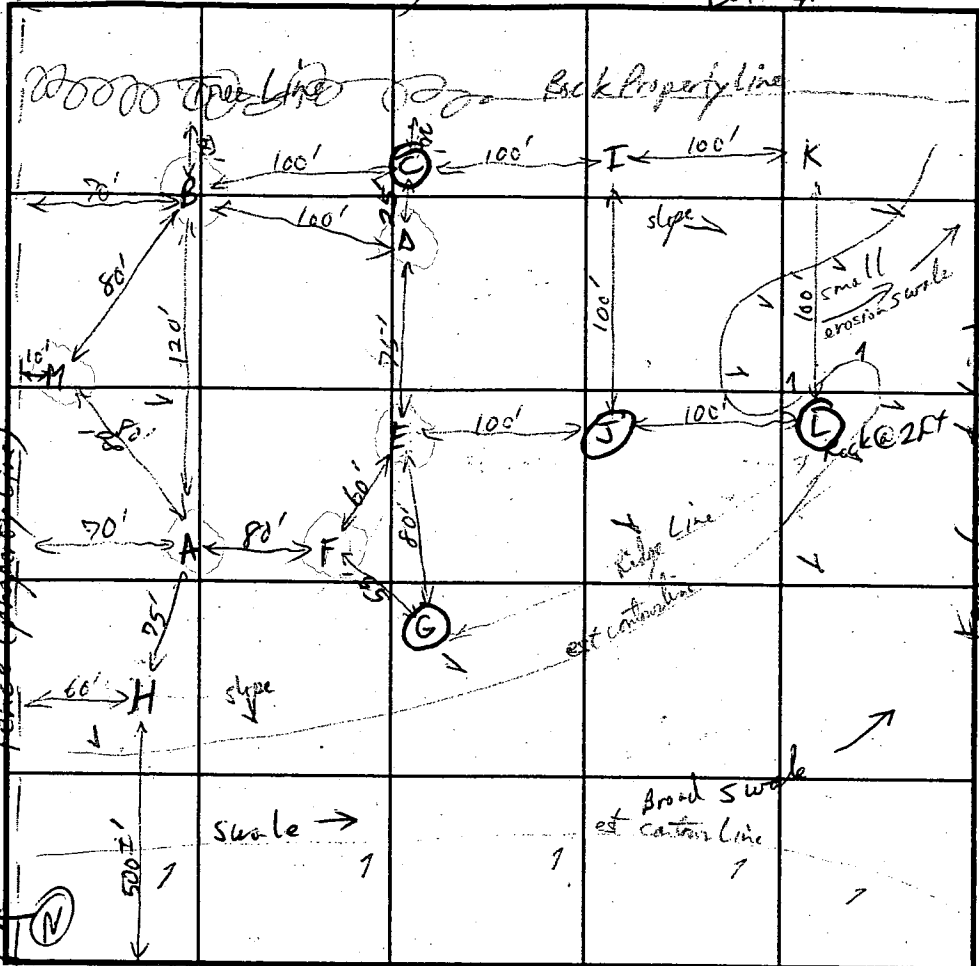 Tree Line
Back Property line
B
100'
C
100'
I
100'
K
70'
25'
100'
D
slope
80'
120'
75'
100'
100'
small
erosion swale
10'
M
80'
E
100'
J
100'
L
Rock@2ft
70'
A
80'
F
60'
80'
Ridge Line
55'
G
est contour line
75'
60'
H
slope
Swale
Broad Swale
est contour Line
500±'
N